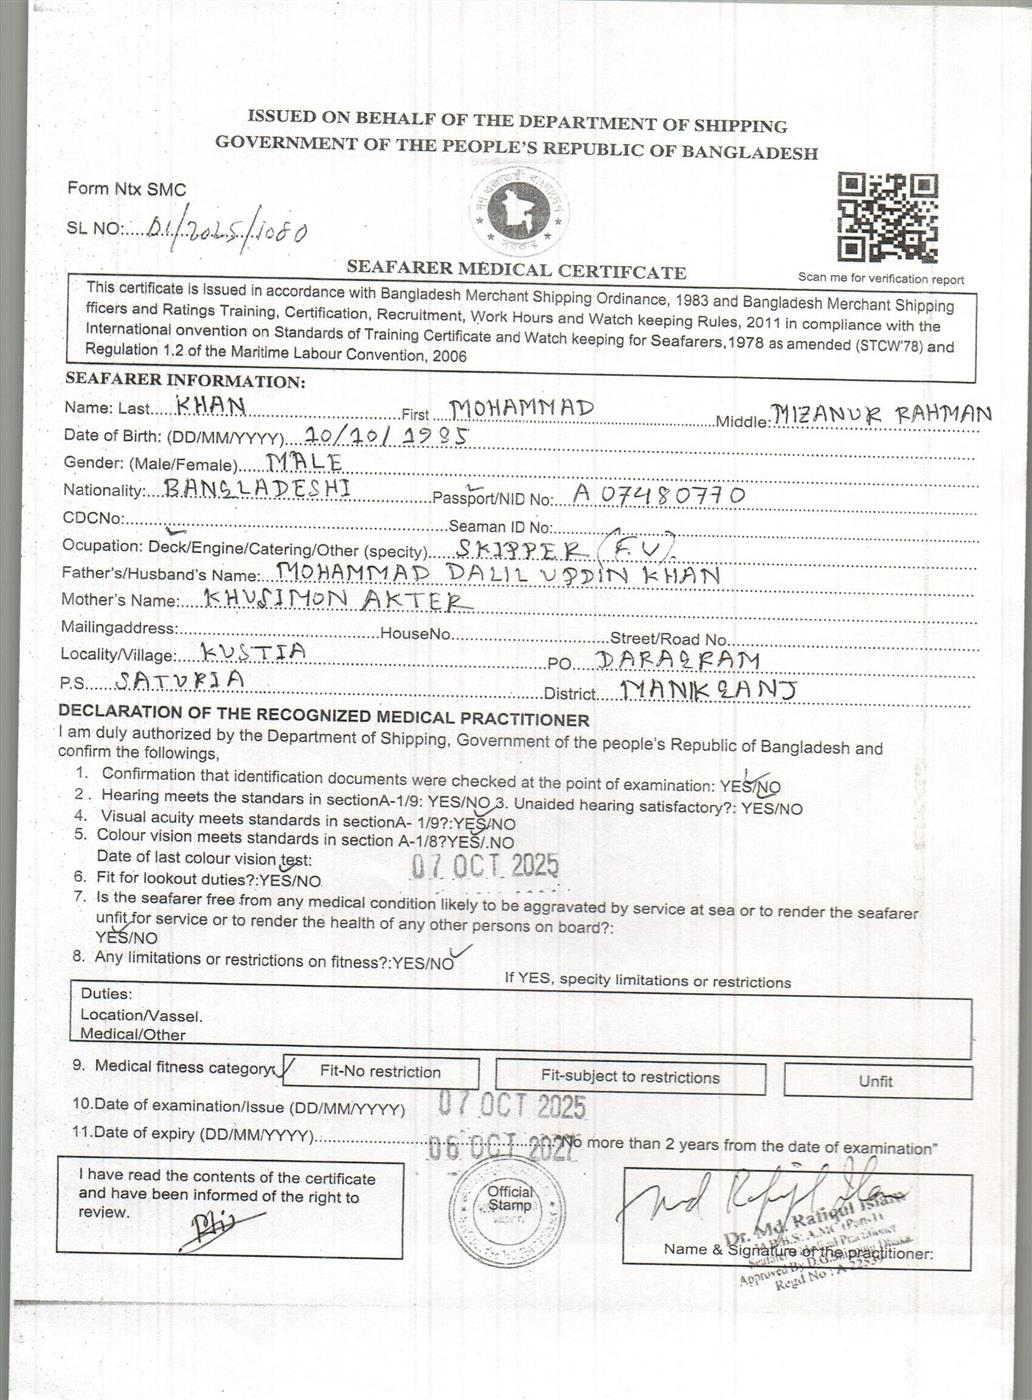 ISSUED ON BEHALF OF THE DEPARTMENT OF SHIPPING
GOVERNMENT OF THE PEOPLE'S REPUBLIC OF BANGLADESH
Form Ntx SMC
SL NO:....01/2025/1080
Scan me for verification report
SEAFARER MEDICAL CERTIFCATE
This certificate is issued in accordance with Bangladesh Merchant Shipping Ordinance, 1983 and Bangladesh Merchant Shipping
fficers and Ratings Training, Certification, Recruitment, Work Hours and Watch keeping Rules, 2011 in compliance with the
International onvention on Standards of Training Certificate and Watch keeping for Seafarers,1978 as amended (STCW'78) and
Regulation 1.2 of the Maritime Labour Convention, 2006
SEAFARER INFORMATION:
Name: Last....KHAN....First....MOHAMMAD....Middle:MIZANUR RAHMAN
Date of Birth: (DD/MM/YYYY)...10/10/1985
Gender: (Male/Female)....MALE
Nationality:...BANGLADESHI....Passport/NID No: A 07480770
CDCNo:....Seaman ID No:....
Ocupation: Deck/Engine/Catering/Other (specify)....SKIPPER (F.V).
Father's/Husband's Name:...MOHAMMAD DALIL UDDIN KHAN
Mother's Name:....KHUSIMON AKTER
Mailingaddress:....HouseNo....Street/Road No....
Locality/Village:...KUSTIA....PO. DARAGRAM
P.S....SATURIA....District....MANIKGANJ
DECLARATION OF THE RECOGNIZED MEDICAL PRACTITIONER
I am duly authorized by the Department of Shipping, Government of the people's Republic of Bangladesh and
confirm the followings,
1. Confirmation that identification documents were checked at the point of examination: YES/NO
2 . Hearing meets the standars in sectionA-1/9: YES/NO 3. Unaided hearing satisfactory?: YES/NO
4. Visual acuity meets standards in sectionA- 1/9?:YES/NO
5. Colour vision meets standards in section A-1/8?YES/.NO
Date of last colour vision test: 07 OCT 2025
6. Fit for lookout duties?:YES/NO
7. Is the seafarer free from any medical condition likely to be aggravated by service at sea or to render the seafarer
unfit for service or to render the health of any other persons on board?:
YES/NO
8. Any limitations or restrictions on fitness?:YES/NO
If YES, specity limitations or restrictions
Duties:
Location/Vassel.
Medical/Other
9. Medical fitness category: Fit-No restriction Fit-subject to restrictions Unfit
10.Date of examination/Issue (DD/MM/YYYY) 07 OCT 2025
11.Date of expiry (DD/MM/YYYY)....06 OCT 2027 "No more than 2 years from the date of examination"
I have read the contents of the certificate
and have been informed of the right to
review.
Official
Stamp
Md Rafiqul Islam
Dr. Md. Rafiqul Islam
Name & Signature of the practitioner:
Approved By D.G.Shipping Dhaka
Regd No : A 22539